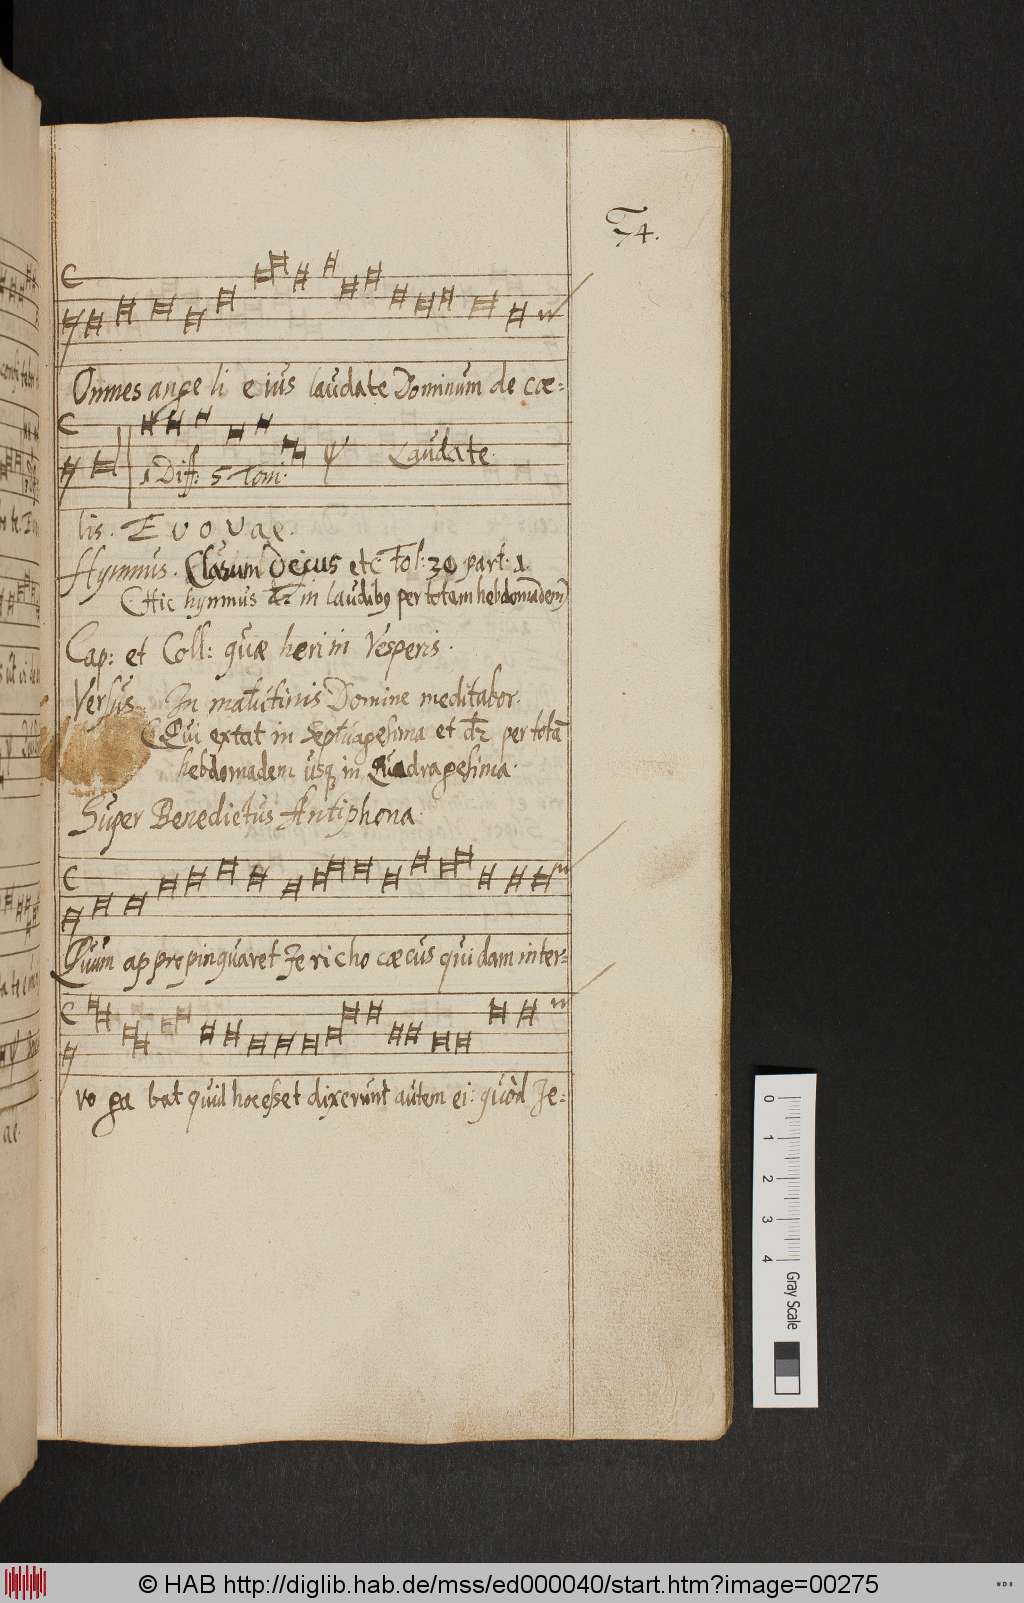 74.
Omnes ange li e ius laudate Dominum de cœ=
1 Diff: 5 Toni.
℣ Laudate.
lis. E v o v ae.
Hymnus. Clarum Decus etc Fol: 30 part. 1.
Hic hymnus dr in laudibq per totam hebdomadem
Cap: et Coll: quæ heri in Vesperis.
Versus. In matutinis Domine meditabor.
Qui extat in Septuagesima et dr per totā
hebdomadem usq in Quadragesima.
Super Benedictus Antiphona.
Quum appropinquaret Jericho cœcus quidam inter=
ro ga bat quid hoc esset dixerunt autem ei: quòd Je=
ae.
0
1
2
3
4
Gray Scale
© HAB http://diglib.hab.de/mss/ed000040/start.htm?image=00275